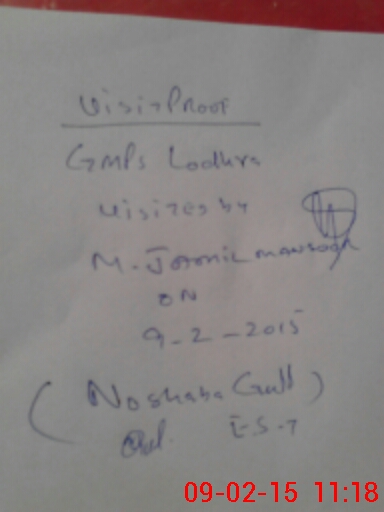 Visit Proof
GMPS Lodhra
visited by
M. Jamil mansoor
ON
9-2-2015
(Noshaba Gull)
E.S.T
09-02-15 11:18